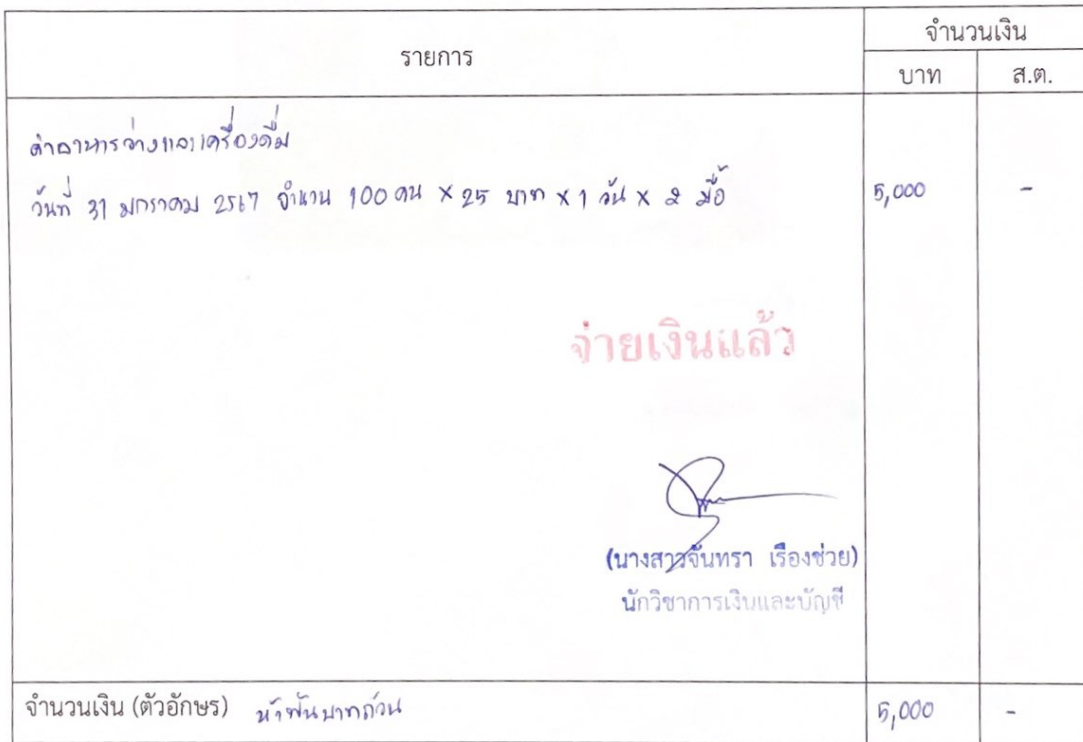 รายการ
จำนวนเงิน
บาท
ส.ต.
ค่าอาหารว่างและเครื่องดื่ม
วันที่ 31 มกราคม 2567 จำนวน 100 คน x 25 บาท x 1 วัน x 2 มื้อ 5,000 -
จ่ายเงินแล้ว
(นางสาวจันทรา เรืองช่วย)
นักวิชาการเงินและบัญชี
จำนวนเงิน (ตัวอักษร) ห้าพันบาทถ้วน 5,000 -